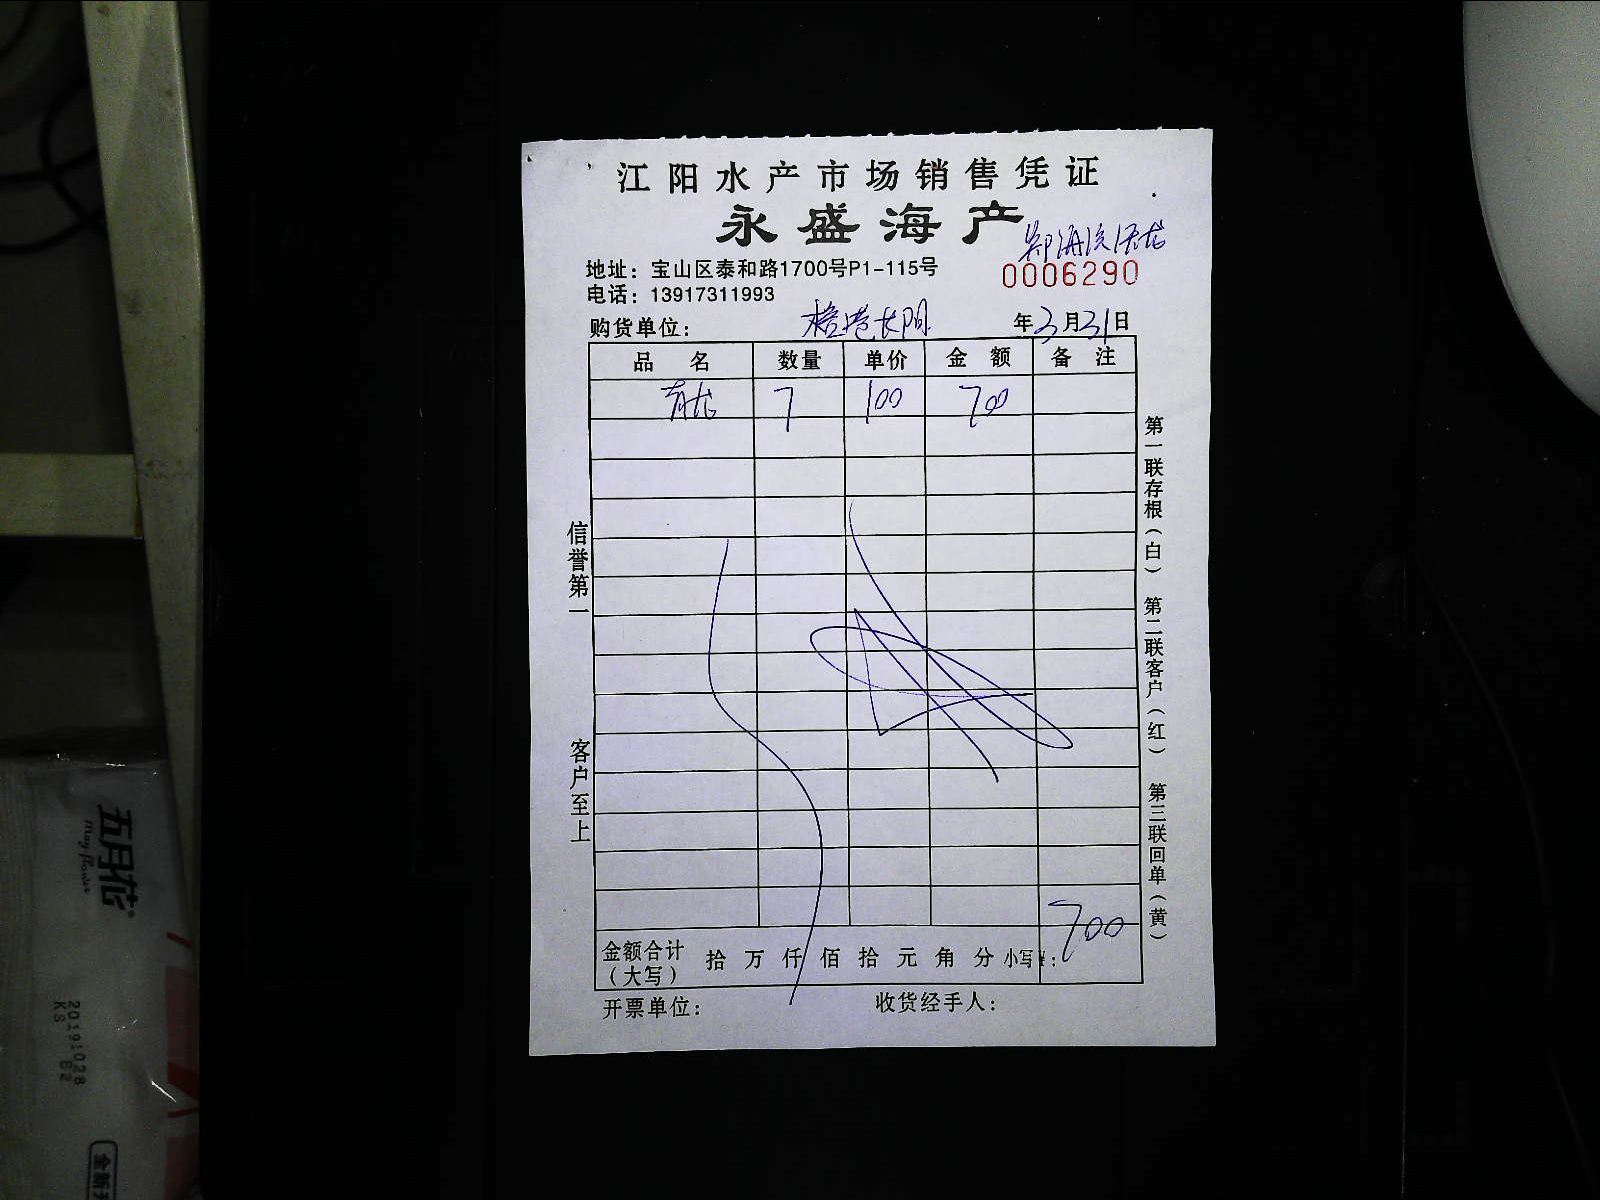 江阳水产市场销售凭证
永盛海产
地址：宝山区泰和路1700号P1-115号
0006290
电话：13917311993
购货单位： 年3月31日
品 名 数量 单价 金 额 备 注
青龙 7 100 700
信誉第一
客户至上
第一联存根（白） 第二联客户（红） 第三联回单（黄）
700
金额合计（大写） 拾 万 仟 佰 拾 元 角 分 小写¥：
开票单位： 收货经手人：
五月花
May flower
20191028
KS B2